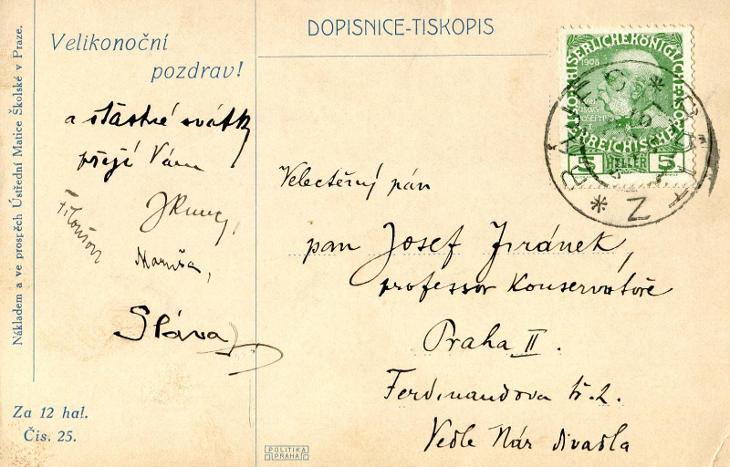 DOPISNICE-TISKOPIS
Nákladem a ve prospěch Ústřední Matice Školské v Praze.
Velikonoční
pozdrav!
a šťastné svátky
přejí Vám
Maruša,
Sláva
Za 12 hal.
Čís. 25.
POLITIKA
PRAHA
1908
5 HELLER 5
Velectěný pán
pan Josef Jiránek,
professor Konservatoře
Praha II.
Ferdinandova tř. 2.
Vedle Nár divadla